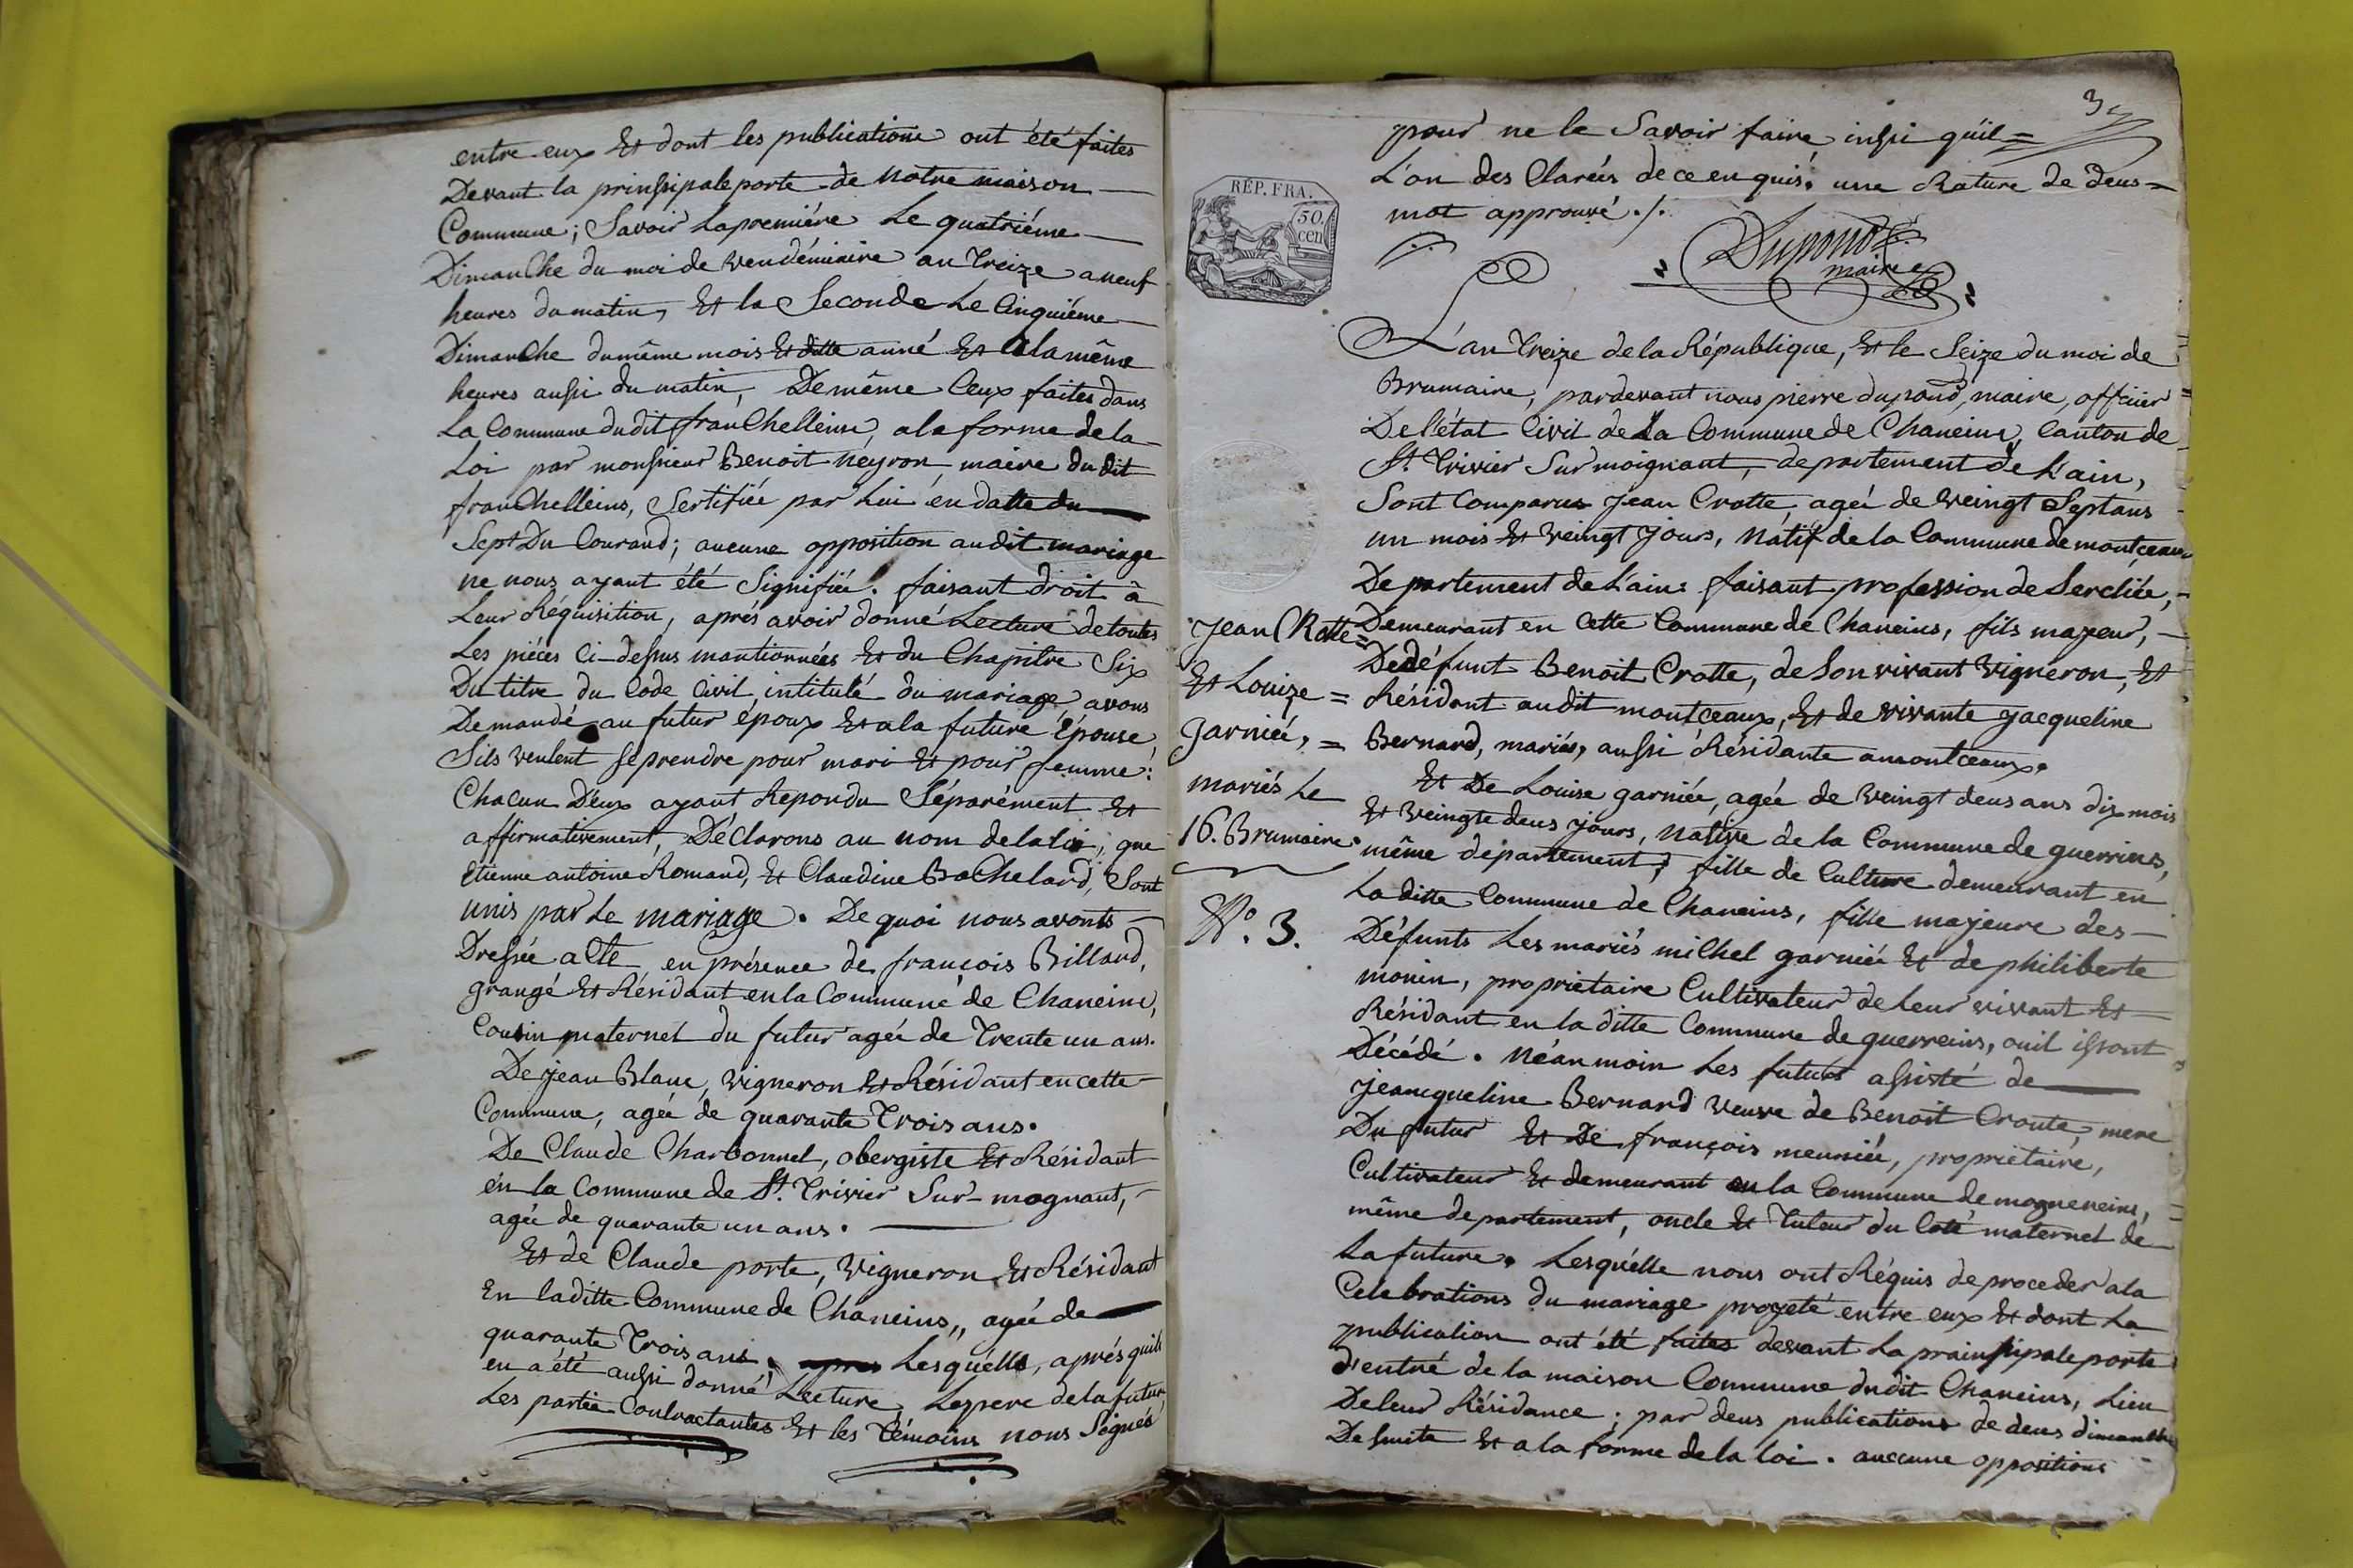 entre eux Et dont les publications ont été faites
Devant la prinssipale porte de notre maison
Commune; Savoir La premiére Le quatriéme
Dimanche du moi de vendémiaire an treize a neuf
heures du matin, Et la Seconde Le Cinquiéme
Dimanche du même mois Et ditte anné Et Ala même
heures aussi du matin, De même Ceux faites dans
La Commune dudit franChelleins, a la forme de la
Loi par monsieur Benoit neyron, maire du dit
franChelleins, Sertifiée par Lui en datte du
Sept Du Courand; aucune opposition audit mariage
ne nous ayant été Signifiée. faisant droit à
Leur Réquisition, aprés avoir donné Lecture de toutes
Les piéces Ci-dessus mantionnées Et du Chapitre Six
Du titre du Code Civil intitulé du mariage, avons
Demandé au futur époux Et a la future Epouse
Sils veulent se prendre pour mari Et pour femme:
Chacun D'eux ayant Repondu Séparément Et
affirmativement, Déclarons au nom de la loi, que
Etienne antoine Romand, Et Claudine BaChelard, Sont
unis par Le mariage. De quoi nous avonts
Dressée acte en présence de françois Billoud,
grangé Et Résidant en la Commune de Chaneins,
Cousin maternel du futur agée de Trente un ans.
De jean Blanc, vigneron Et Résidant en cette
Commune, agée de quarante Trois ans.
De Claude Charbonnel, obergiste Et Résidant
én la Commune de St. Trivier Sur-mognant,
agée de quarante un ans.
Et de Claude porte, vigneron Et Résidant
En laditte Commune de Chaneins, agée de
quarante Trois ans. apres Lesquélls, aprés quils
en a été aussi donné Lecture, Le pere de la futur
Les partie Contractantes Et les Témoins nous Signés
3
pour ne le Savoir faire, inssi quil=
L'on des Clarées de ce en quis. une Rature de deus=
mot approuvé./.
RÉP. FRA.
50
cen
Dupond
maire
L'an treize de la République, Et le Seize du moi de
Brumaire, pardevant nous pierre dupond, maire, officier
De l'état Civil de La Commune de Chaneins, Canton de
St. Trivier Sur moignant, departement de L'ain,
Sont Comparus Jean Crotte, agée de veingt Sept ans
un mois Et veingt jours, Natif de la Commune de montceaux
Departement de L'ain: faisant profession de Sercliée,
Demeurant en Cette Commune de Chaneins, fils majeur,
De défunt Benoit Crotte, de Son vivant vigneron, Et
Résidant audit montceaux, Et de vivante jacqueline
Bernard, mariés, aussi Résidante a montceaux.
Jean CRotte=
Et Louize =
Garniée, =
mariés Le
16. Brumaire.
N°. 3.
Et De Louise garniée, agée de veingt deus ans dix mois
Et veingte deus jours, native de la Commune de guerrins,
même département, fille de Culture demeurant en
La ditte Commune de Chaneins, fille majeure des
Défunts Les mariés milhel garniée Et de philiberte
monin, propriétaire Cultivateur de Leur vivant Et
Résidant en la ditte Commune de guerreins, ouil issont
Décédé. Néanmoin Les futurs assisté de
jeancqueline Bernard veuve de Benoit Croute, mere
Du futur Et De françois meuniée, propriétaire,
Cultivateur Et demeurant en la Commune de mogneneins,
même departement, oncle Et Tuteur du Coté maternel de
La future. Lesquélle nous ont Réquis de proceder a la
Celebrations du mariage projeté entre eux Et dont La
publication ont été faites devant La prainssipale porte
d'entré de la maison Commune dudit Chaneins, Lieu
De leur Résidance; par deus publications de deus dimanche
De suite Et a la forme de la Loi. auccune oppositions